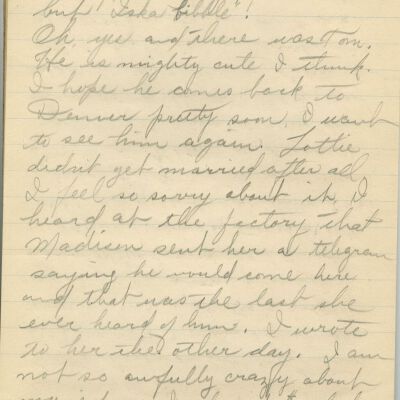 but "Iska bibble"!
Oh yes and there was Tom.
He is mighty cute I think.
I hope he comes back to
Denver pretty soon, I want
to see him again. Lottie
didn't get married after all
I feel so sorry about it. I
heard at the factory that
Madisen sent her a telegram
saying he would come here
and that was the last she
ever heard of him. I wrote
to her the other day. I am
not so awfully crazy about